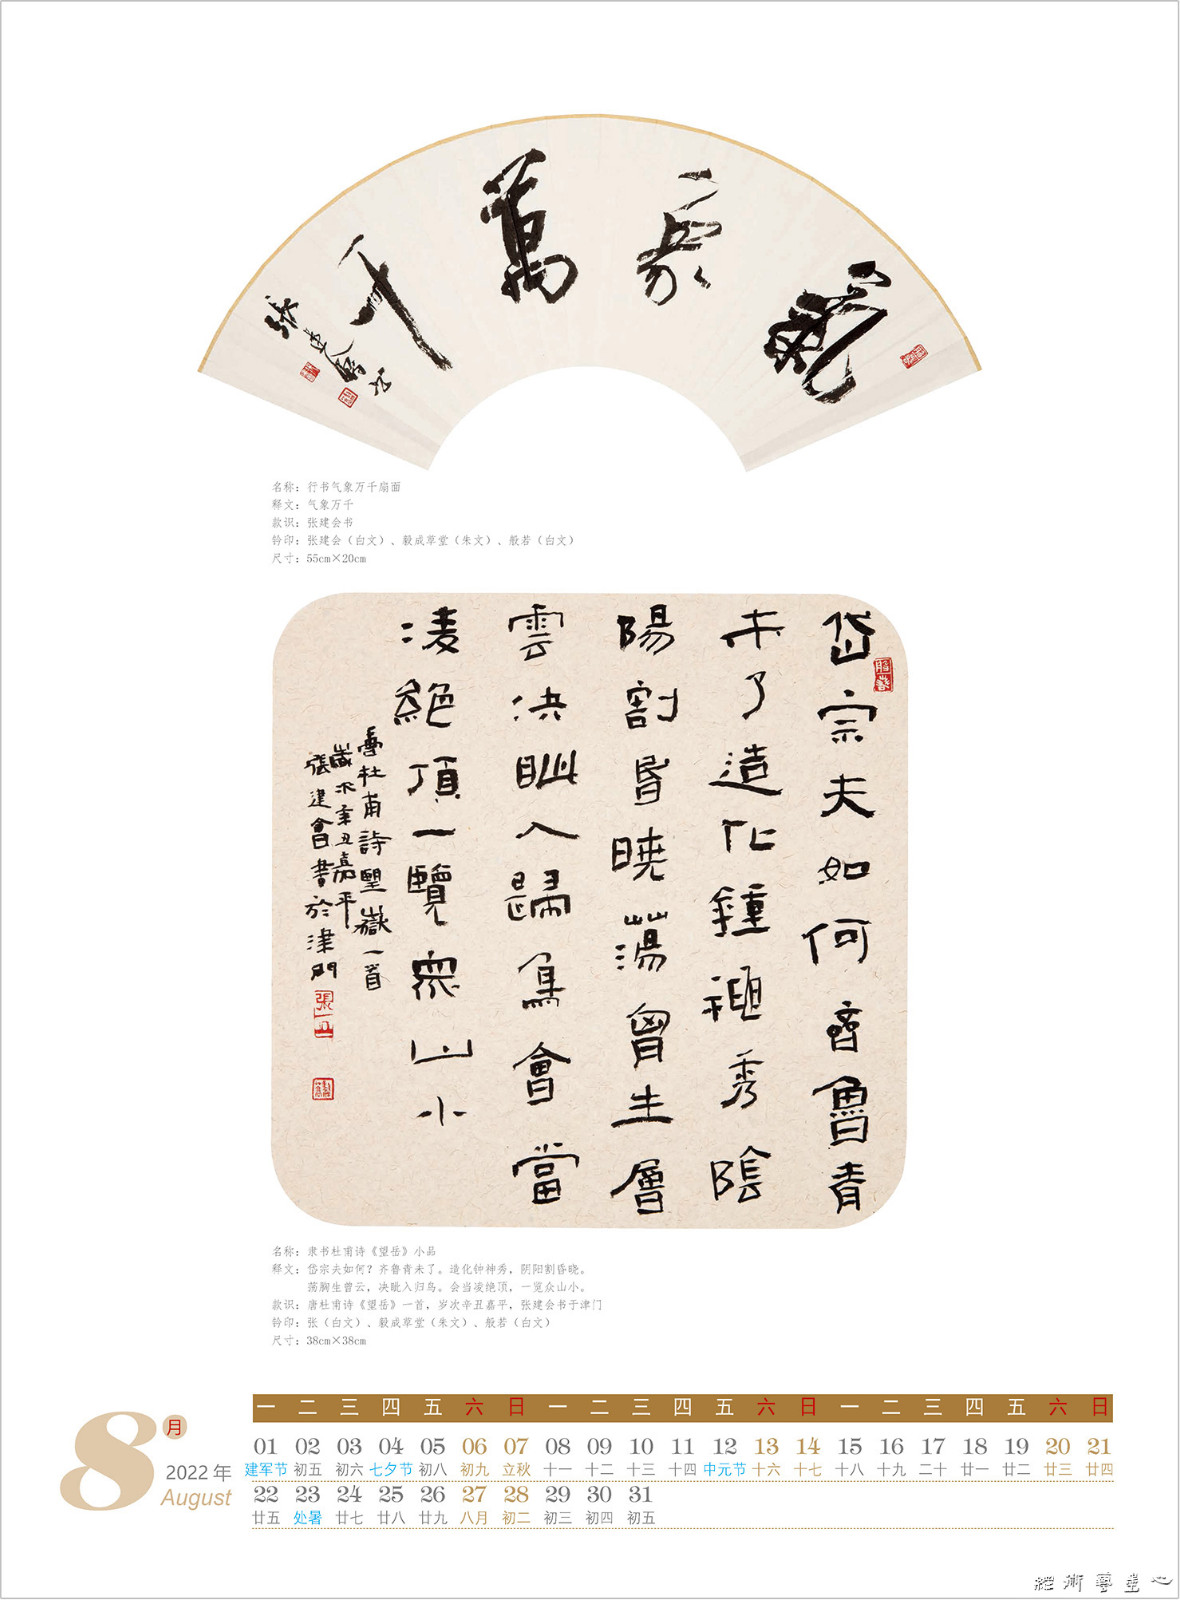 氣象萬千
張建會書
名称：行书气象万千扇面
释文：气象万千
款识：张建会书
钤印：张建会（白文）、毅成草堂（朱文）、般若（白文）
尺寸：55cm×20cm
岱宗夫如何齊魯青
未了造化鍾神秀陰
陽割昏曉蕩胷生層
雲決眦入歸鳥會當
凌絕頂一覽眾山小
唐杜甫詩望嶽一首
歲次辛丑嘉平
張建會書於津門
名称：隶书杜甫诗《望岳》小品
释文：岱宗夫如何？齐鲁青未了。造化钟神秀，阴阳割昏晓。
荡胸生曾云，决眦入归鸟。会当凌绝顶，一览众山小。
款识：唐杜甫诗《望岳》一首，岁次辛丑嘉平，张建会书于津门
钤印：张（白文）、毅成草堂（朱文）、般若（白文）
尺寸：38cm×38cm
8月
2022 年
August
一 二 三 四 五 六 日 一 二 三 四 五 六 日 一 二 三 四 五 六 日
01 02 03 04 05 06 07 08 09 10 11 12 13 14 15 16 17 18 19 20 21
建军节 初五 初六 七夕节 初八 初九 立秋 十一 十二 十三 十四 中元节 十六 十七 十八 十九 二十 廿一 廿二 廿三 廿四
22 23 24 25 26 27 28 29 30 31
廿五 处暑 廿七 廿八 廿九 八月 初二 初三 初四 初五